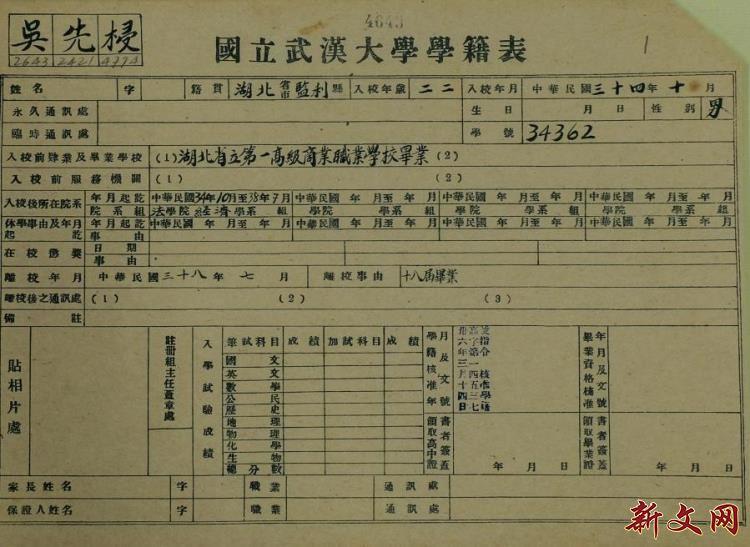 4643
吳先
2643 2421 4794
國立武漢大學學籍表
1
姓名 字 籍貫 湖北省市監利縣 入校年歲 二二 入校年月 中華民國三十四年十月
永久通訊處 生日 月 日 性別 男
臨時通訊處 學號 34362
入校前肄業及畢業學校 (1)湖北省立第一高級商業職業學校畢業 (2)
入校前服務機關 (1) (2)
入校後所在院系 年月起訖 中華民國34年10月至38年7月 中華民國 年 月至 年 月 中華民國 年 月至 年 月 中華民國 年 月至 年 月
院系組 法學院 經濟學系 組 學院 學系 組 學院 學系 組 學院 學系 組
休學事由及年月起訖 年月起訖 中華民國 年 月至 年 月 中華民國 年 月至 年 月 中華民國 年 月至 年 月 中華民國 年 月至 年 月
事由
在校懲獎 日期
事由
離校年月 中華民國三十八年七月 離校事由 十八屆畢業
離校後之通訊處 (1) (2) (3)
備註
貼相片處
註冊組主任蓋章處
入學試驗成績
筆試科目 成績 加試科目 成績
國文
英文
數學
公民
歷史
地理
物理
化學
生物
總分數
學籍核准年月及文號
指令
字第一四五三七
卅六年三月十四日
核准學籍
領取高中證書者簽蓋
年 月 日
畢業資格核准年月及文號
領取學業證書者簽蓋
年 月 日
家長姓名 字 職業 通訊處
保證人姓名 字 職業 通訊處
新文网